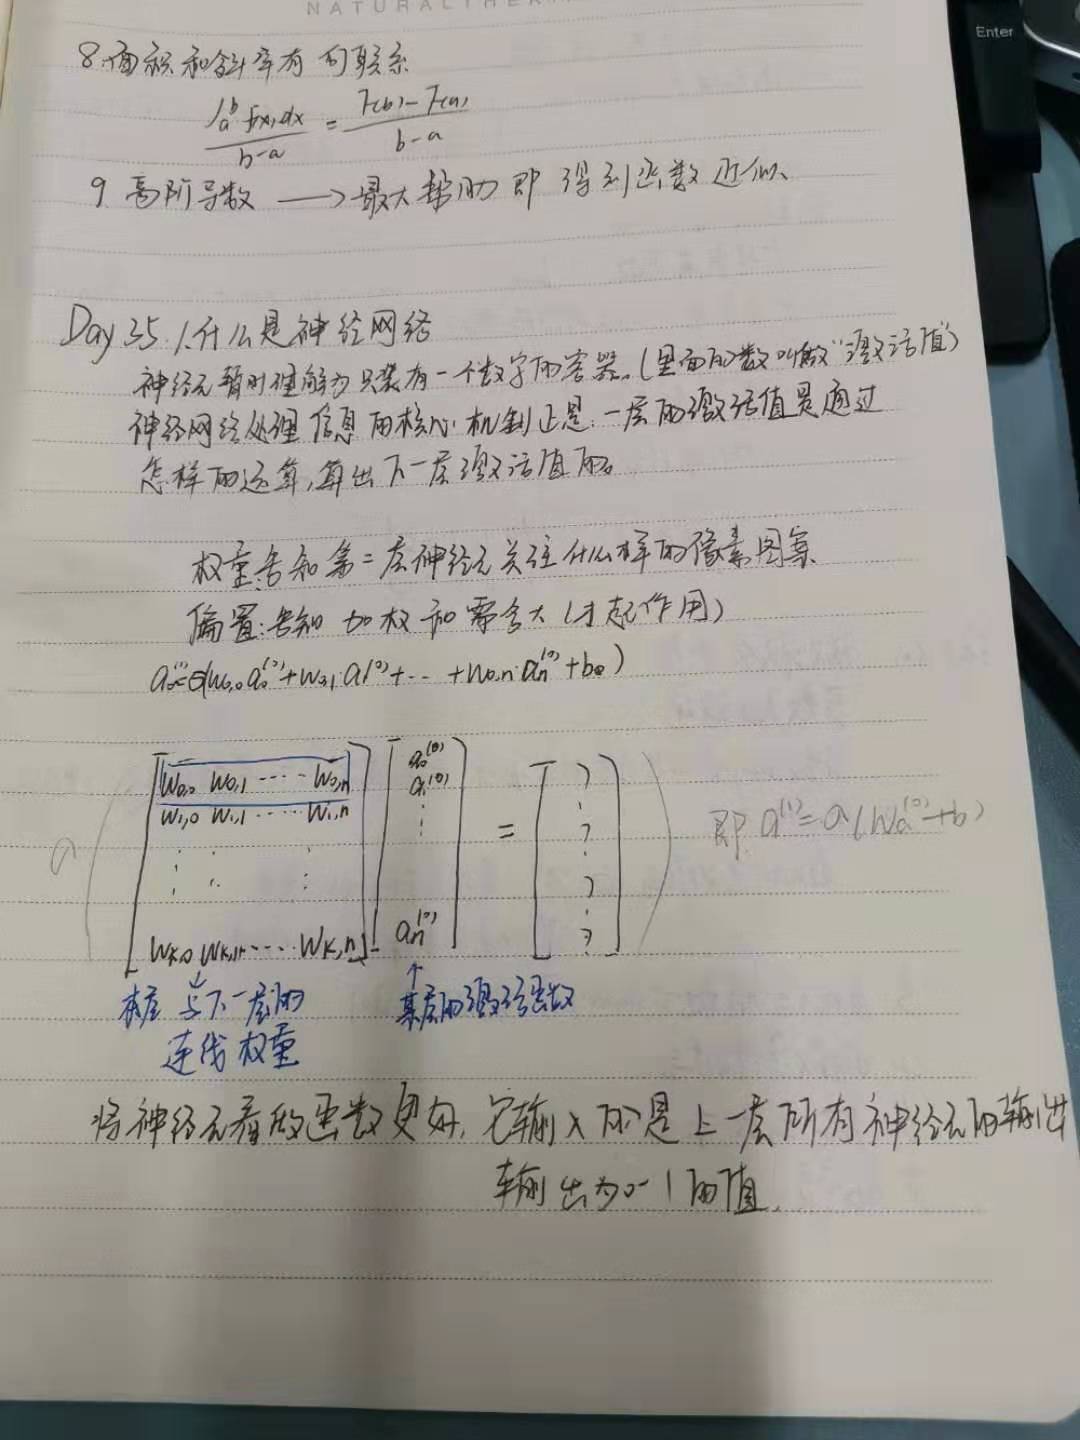 NATURALTHER
Enter
8.面积和斜率有何联系
∫a^b f(x)dx / b-a = F(b)-F(a) / b-a
9 高阶导数 ⟶ 最大帮助即得到函数近似、
Day 35. 1.什么是神经网络
神经元暂时理解为只装有一个数字的容器。(里面的数叫做“激活值”)
神经网络处理信息的核心机制正是:一层的激活值是通过
怎样的运算,算出下一层激活值的。
权重:告知第二层神经元关注什么样的像素图案
偏置:告知加权和需多大(才起作用)
a₀⁽¹⁾=σ(w0,0 a₀⁽⁰⁾+w0,1 a₁⁽⁰⁾+…+w0,n·an⁽⁰⁾+b0)
w0,0 w0,1 ····· w0,n a₀⁽⁰⁾ ?
w1,0 w1,1 ····· w1,n a₁⁽⁰⁾
= ? 即 a⁽¹⁾=σ(Wa⁽⁰⁾+b)
?
wk,0 wk,1 ····· wk,n an⁽⁰⁾ ?
本层与下一层的 某层的激活函数
连线权重
将神经元看做函数更好,它输入的是上一层所有神经元的输出
输出为0-1的值.